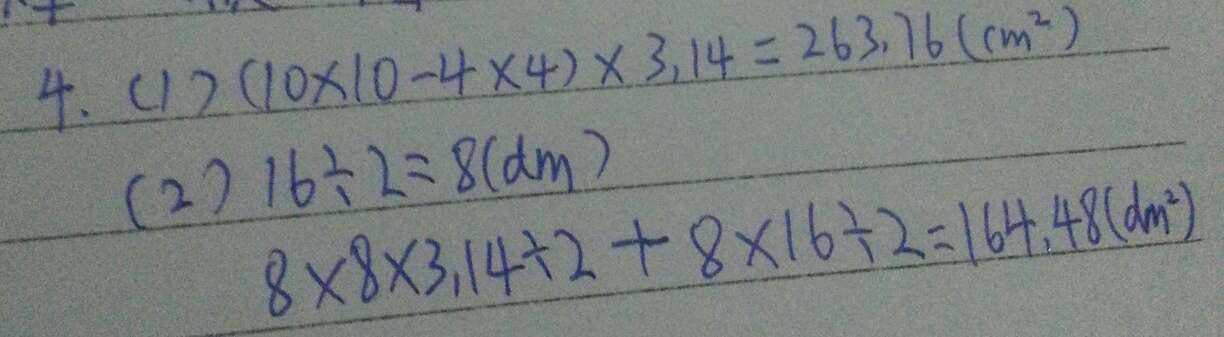 4. (1) (10×10-4×4)×3.14=263.76(cm²)
(2) 16÷2=8(dm)
8×8×3.14÷2+8×16÷2=164.48(dm²)